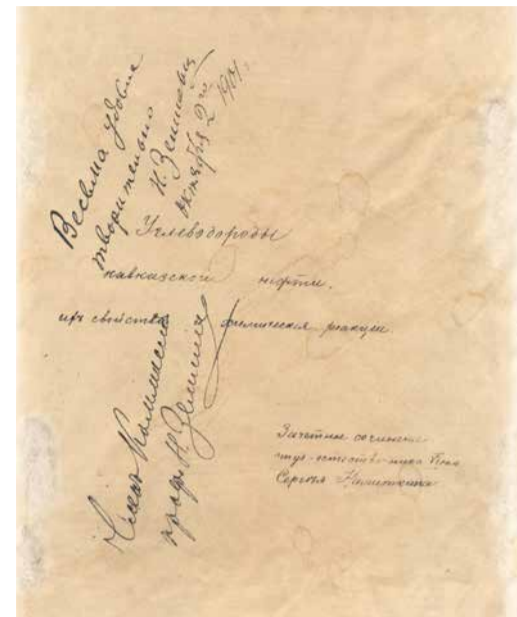 Весьма удовле
творительно
Н. Зелинский
октября 2го 1901 г.
Углеводороды
кавказской нефти,
ихъ свойства химическія реакціи
Членъ Коммиссіи
проф. Н. Зелинскій
Зачетное сочиненіе
Сергѣя Наметкина